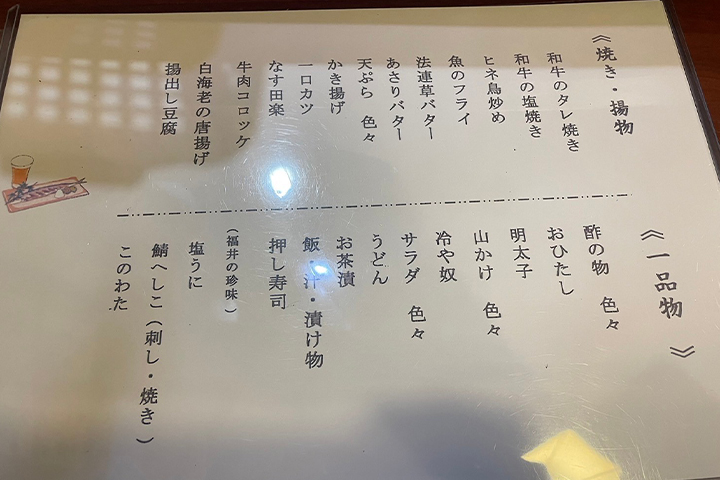 《焼き・揚物
和牛のタレ焼き
和牛の塩焼き
ヒネ鳥炒め
魚のフライ
法連草バター
あさりバター
天ぷら 色々
かき揚げ
一口カツ
なす田楽
牛肉コロッケ
白海老の唐揚げ
揚出し豆腐
《一品物》
酢の物 色々
おひたし
明太子
山かけ 色々
冷や奴
サラダ 色々
うどん
お茶漬
飯・汁・漬け物
押し寿司
（福井の珍味）
塩うに
鯖へしこ（刺し・焼き）
このわた